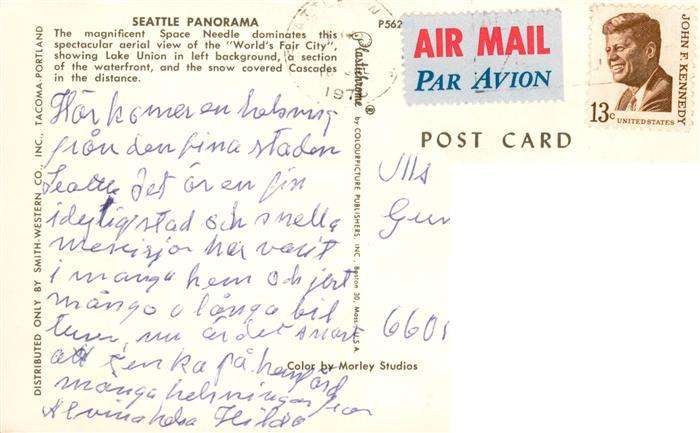 SEATTLE PANORAMA
The magnificent Space Needle dominates this
spectacular aerial view of the "World's Fair City",
showing Lake Union in left background, a section
of the waterfront, and the snow covered Cascades
in the distance.
P562
AIR MAIL
PAR AVION
JOHN F. KENNEDY
13c
UNITED STATES
POST CARD
DISTRIBUTED ONLY BY SMITH-WESTERN CO., INC., TACOMA-PORTLAND
Plastichrome ® by COLOURPICTURE PUBLISHERS, INC., Boston 30, Mass., U.S.A.
Här kommer en helsning
från den fina staden
Seattle det är en fin
idylig stad och snella
menisjor har varit
i manga hem och jort
många o långa bil
turer, nu är det snart
att tenka på hemfärd
många helsningar från
Alvina Hilda
Color by Morley Studios
Ulls
Gun
660